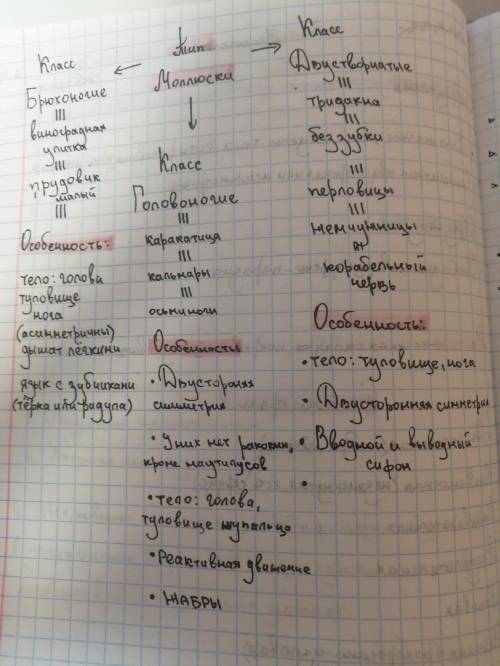 Тип
Моллюски
Класс
Брюхоногие
виноградная
улитка
прудовик
малый
Особенность:
тело: голова
туловище
нога
(асимметричны)
дышат лёгкими
язык с зубчиками
(тёрка или радула)
Класс
Головоногие
каракатица
кальмары
осьминоги
Особенность
• Двустороняя
симметрия
• У них нет раковин,
кроме наутилусов
• тело: голова,
туловище щупальца
• Реактивная движение
• ЖАБРЫ
Класс
Двустворчатые
тридакна
беззубки
перловицы
жемчужницы
корабельный
червь
Особенность:
• тело: туловище, нога
• Двусторонняя симметрия
• Вводной и выводный
сифон
•